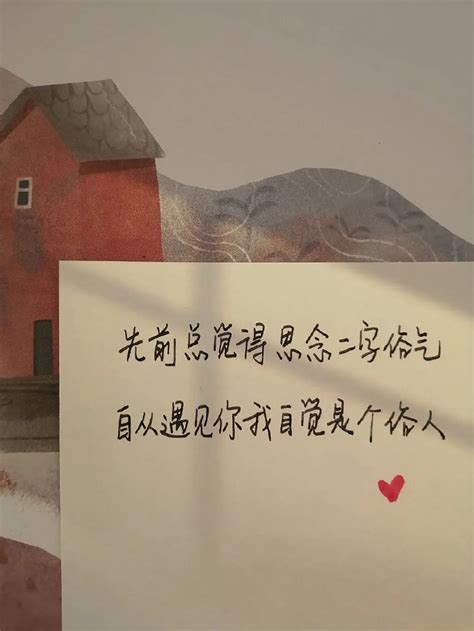 先前总觉得思念二字俗气
自从遇见你我自觉是个俗人